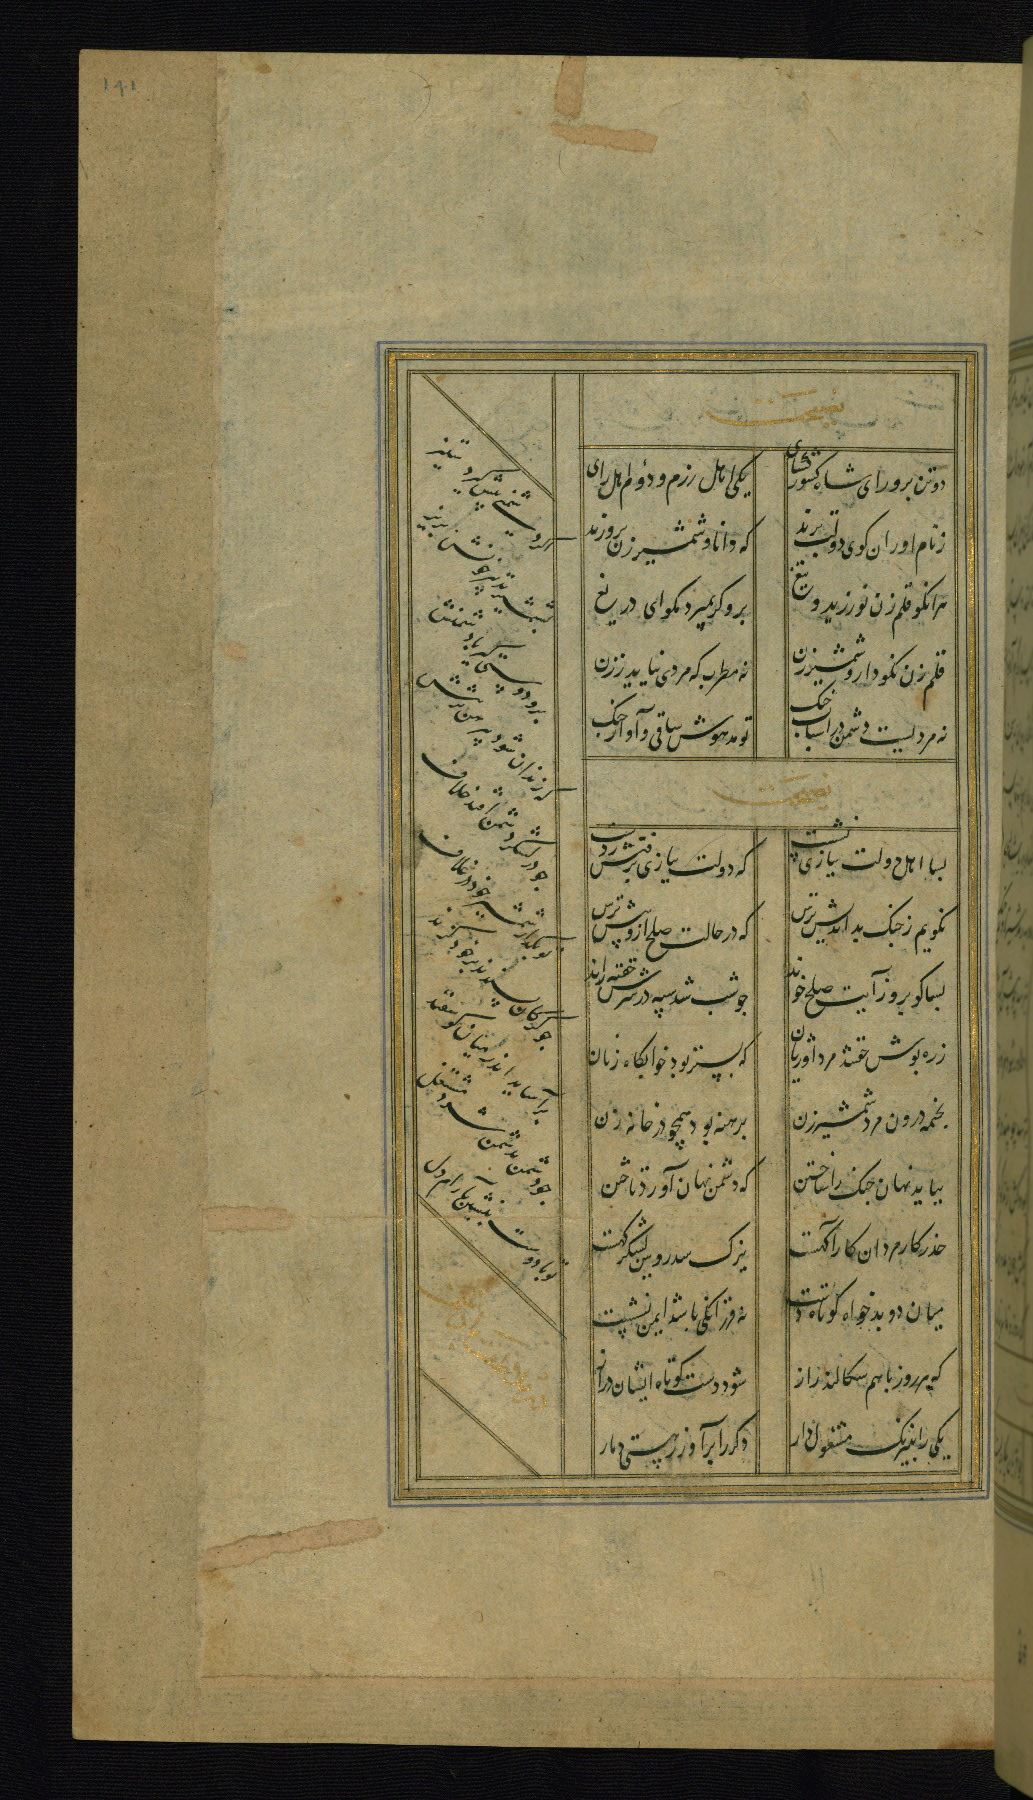 ۱۸۱
نصیحت
دو تن پرور ای شاه کشور گشای
یکی اهل رزم و دوم اهل رای
ز نام اوران کوی دولت برند
که دانا و شمشیرزن پرورند
هر انکو قلم زن نورزید و تیغ
برو گر بمیرد مگو ای دریغ
قلم زن نکو دار و شمشیرزن
نه مطرب که مردی نیاید ز زن
نه مردیست دشمن در اسباب جنک
تو مدهوش ساقی و آواز جنک
نصیحت
بسا اهل دولت ببازی نشست
که دولت ببازی برفتش ز دست
نکویم ز جنک بد اندیش ترس
که در حالت صلح ازو بیش ترس
بسا کو بروز آیت صلح خواند
جو شب شد سپه در سر خفته راند
زره پوش خفتند مرد اوژنان
که بستر بود خوابکاه زنان
بخیمه درون مرد شمشیرزن
برهنه بود همچو در خانه زن
بباید نهان جنک را ساختن
که دشمن نهان آورد تاختن
حذر کار مردان کار آکهست
یزک سد رویین لشکر کهست
میان دو بدخواه کوتاه دست
نه فرزانکی باشد ایمن نشست
که هر روز باهم سکالند راز
شود دست کوتاه ایشان دراز
یکی را بنیرنک مشغول دار
دکر را برآور ز هستی دمار
اکر دشمنی پیش کیرد ستیز
بشمشیر تدبیر خونش بریز
برو دوستی کیر با دشمنش
که زندان شود پیرهن بر تنش
جو در لشکر دشمن افتد خلاف
تو بکذار شمشیر خود در غلاف
جو کرکان پسندند بر هم کزند
برآساید اندر میان کوسفند
جو دشمن بدشمن شود مشتغل
تو با دوست بنشین بآرام دل